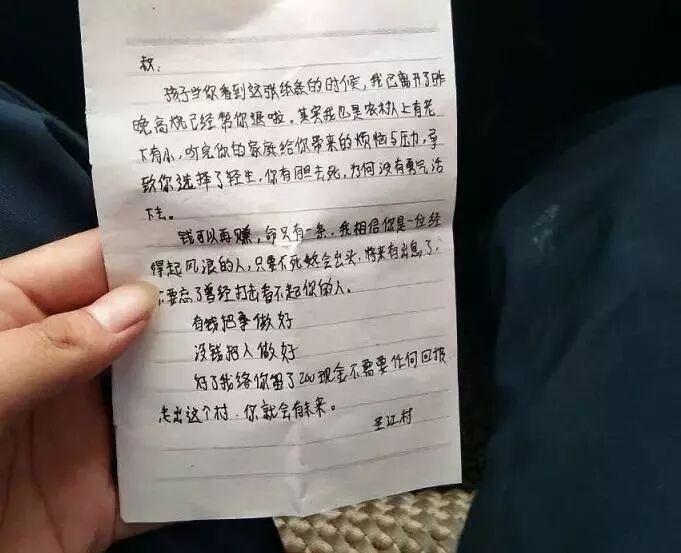 叔:
孩子当你看到这张纸条的时候,我已离开了昨
晚高烧已经帮你退啦。其实我也是农村人上有老
下有小,听完你的家庭给你带来的烦恼与压力,导
致你选择了轻生,你有胆去死,为何没有勇气活
下去。
钱可以再赚,命只有一条,我相信你是一位经
得起风浪的人,只要不死终会出头,将来有出息了,
不要忘了曾经打击看不起你的人。
有钱把事做好
没钱把人做好
对了我给你留了200现金不需要任何回报
走出这个村,你就会有未来。
王江村